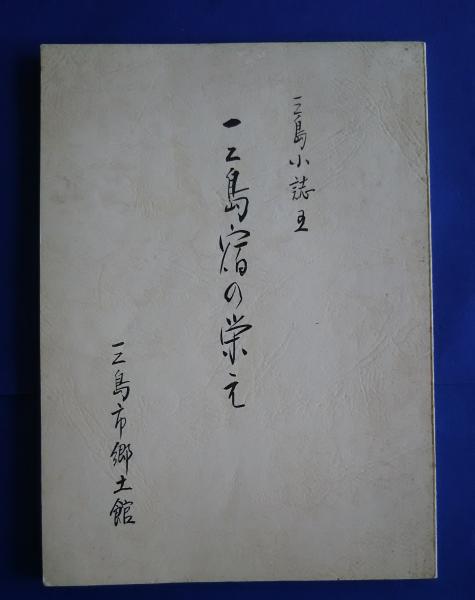 三島小誌五
三島宿の栄え
三島市郷土館